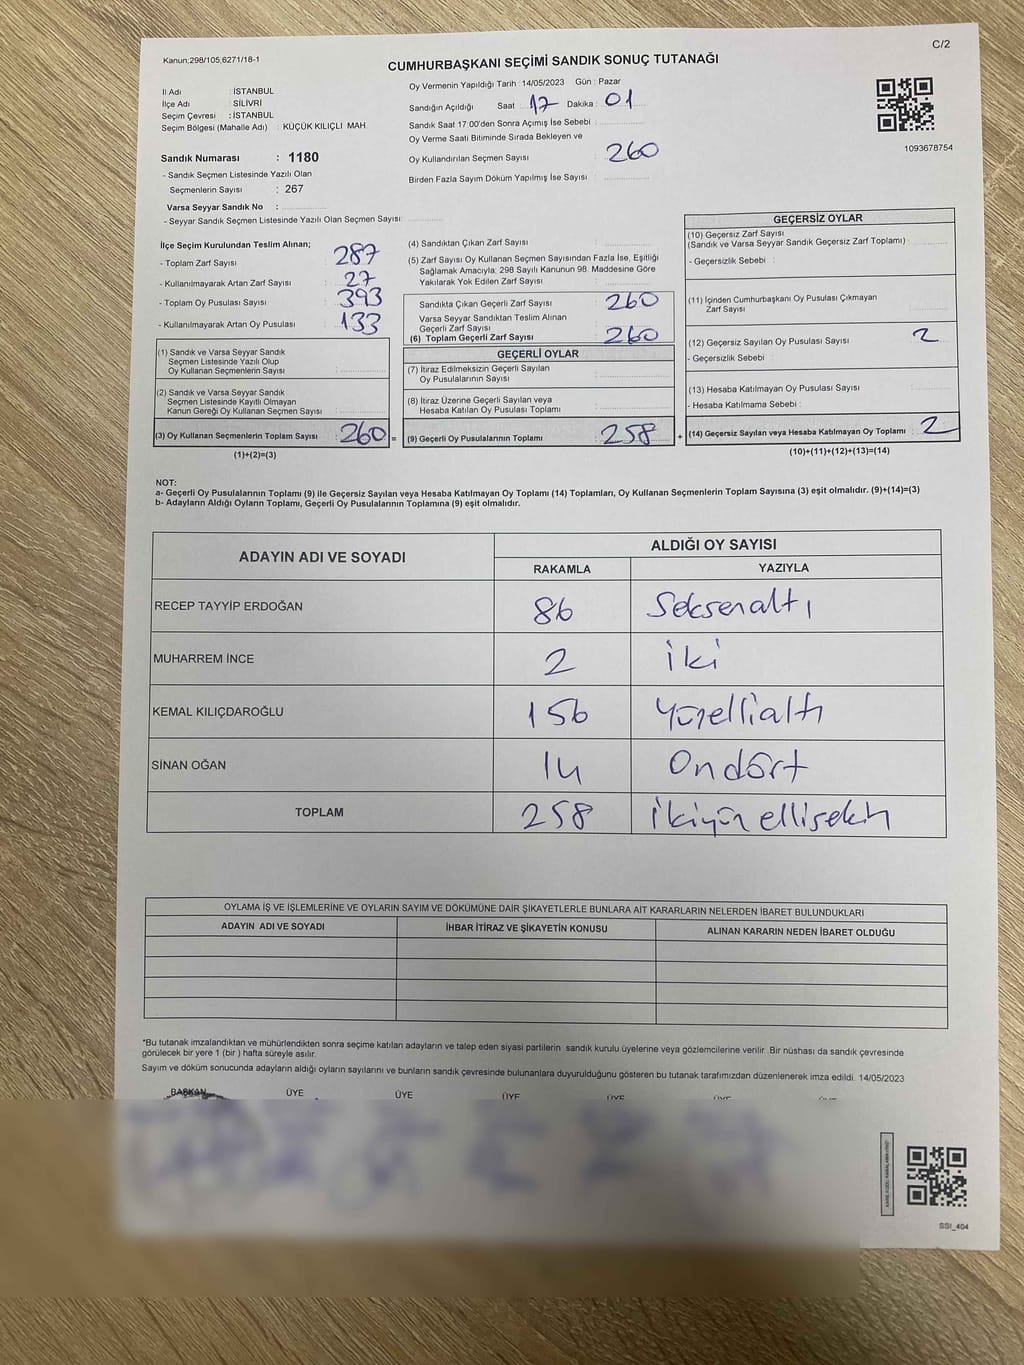 Kanun;298/105;6271/18-1
C/2
CUMHURBAŞKANI SEÇİMİ SANDIK SONUÇ TUTANAĞI
İl Adı : İSTANBUL
İlçe Adı : SİLİVRİ
Seçim Çevresi : İSTANBUL
Seçim Bölgesi (Mahalle Adı) : KÜÇÜK KILIÇLI MAH.
Oy Vermenin Yapıldığı Tarih 14/05/2023 Gün : Pazar
Sandığın Açıldığı Saat 17 Dakika : 01
Sandık Saat 17.00'den Sonra Açımış İse Sebebi :
Oy Verme Saati Bitiminde Sırada Bekleyen ve
Oy Kullandırılan Seçmen Sayısı : 260
Birden Fazla Sayım Döküm Yapılmış İse Sayısı :
1093678754
Sandık Numarası : 1180
- Sandık Seçmen Listesinde Yazılı Olan
Seçmenlerin Sayısı : 267
Varsa Seyyar Sandık No :
- Seyyar Sandık Seçmen Listesinde Yazılı Olan Seçmen Sayısı:
İlçe Seçim Kurulundan Teslim Alınan;
- Toplam Zarf Sayısı : 287
- Kullanılmayarak Artan Zarf Sayısı : 27
- Toplam Oy Pusulası Sayısı : 393
- Kullanılmayarak Artan Oy Pusulası : 133
(1) Sandık ve Varsa Seyyar Sandık
Seçmen Listesinde Yazılı Olup
Oy Kullanan Seçmenlerin Sayısı :
(2) Sandık ve Varsa Seyyar Sandık
Seçmen Listesinde Kayıtlı Olmayan
Kanun Gereği Oy Kullanan Seçmen Sayısı :
(3) Oy Kullanan Seçmenlerin Toplam Sayısı : 260 =
(1)+(2)=(3)
(4) Sandıktan Çıkan Zarf Sayısı :
(5) Zarf Sayısı Oy Kullanan Seçmen Sayısından Fazla İse, Eşitliği
Sağlamak Amacıyla; 298 Sayılı Kanunun 98. Maddesine Göre
Yakılarak Yok Edilen Zarf Sayısı :
Sandıkta Çıkan Geçerli Zarf Sayısı : 260
Varsa Seyyar Sandıktan Teslim Alınan
Geçerli Zarf Sayısı :
(6) Toplam Geçerli Zarf Sayısı : 260
GEÇERLİ OYLAR
(7) İtiraz Edilmeksizin Geçerli Sayılan
Oy Pusulalarının Sayısı :
(8) İtiraz Üzerine Geçerli Sayılan veya
Hesaba Katılan Oy Pusulası Toplamı :
(9) Geçerli Oy Pusulalarının Toplamı : 258 +
GEÇERSİZ OYLAR
(10) Geçersiz Zarf Sayısı
(Sandık ve Varsa Seyyar Sandık Geçersiz Zarf Toplamı) :
- Geçersizlik Sebebi :
(11) İçinden Cumhurbaşkanı Oy Pusulası Çıkmayan
Zarf Sayısı :
(12) Geçersiz Sayılan Oy Pusulası Sayısı : 2
- Geçersizlik Sebebi :
(13) Hesaba Katılmayan Oy Pusulası Sayısı :
- Hesaba Katılmama Sebebi :
(14) Geçersiz Sayılan veya Hesaba Katılmayan Oy Toplamı : 2
(10)+(11)+(12)+(13)=(14)
NOT:
a- Geçerli Oy Pusulalarının Toplamı (9) ile Geçersiz Sayılan veya Hesaba Katılmayan Oy Toplamı (14) Toplamları, Oy Kullanan Seçmenlerin Toplam Sayısına (3) eşit olmalıdır. (9)+(14)=(3)
b- Adayların Aldığı Oyların Toplamı, Geçerli Oy Pusulalarının Toplamına (9) eşit olmalıdır.
ADAYIN ADI VE SOYADI
ALDIĞI OY SAYISI
RAKAMLA YAZIYLA
RECEP TAYYİP ERDOĞAN 86 Seksenaltı
MUHARREM İNCE 2 iki
KEMAL KILIÇDAROĞLU 156 Yüzellialtı
SİNAN OĞAN 14 Ondört
TOPLAM 258 ikiyüzellisekiz
OYLAMA İŞ VE İŞLEMLERİNE VE OYLARIN SAYIM VE DÖKÜMÜNE DAİR ŞİKAYETLERLE BUNLARA AİT KARARLARIN NELERDEN İBARET BULUNDUKLARI
ADAYIN ADI VE SOYADI İHBAR İTİRAZ VE ŞİKAYETİN KONUSU ALINAN KARARIN NEDEN İBARET OLDUĞU
*Bu tutanak imzalandıktan ve mühürlendikten sonra seçime katılan adayların ve talep eden siyasi partilerin sandık kurulu üyelerine veya gözlemcilerine verilir. Bir nüshası da sandık çevresinde
görülecek bir yere 1 (bir ) hafta süreyle asılır.
Sayım ve döküm sonucunda adayların aldığı oyların sayılarını ve bunların sandık çevresinde bulunanlara duyurulduğunu gösteren bu tutanak tarafımızdan düzenlenerek imza edildi. 14/05/2023
BAŞKAN ÜYE ÜYE ÜYE ÜYE ÜYE
SSI_404